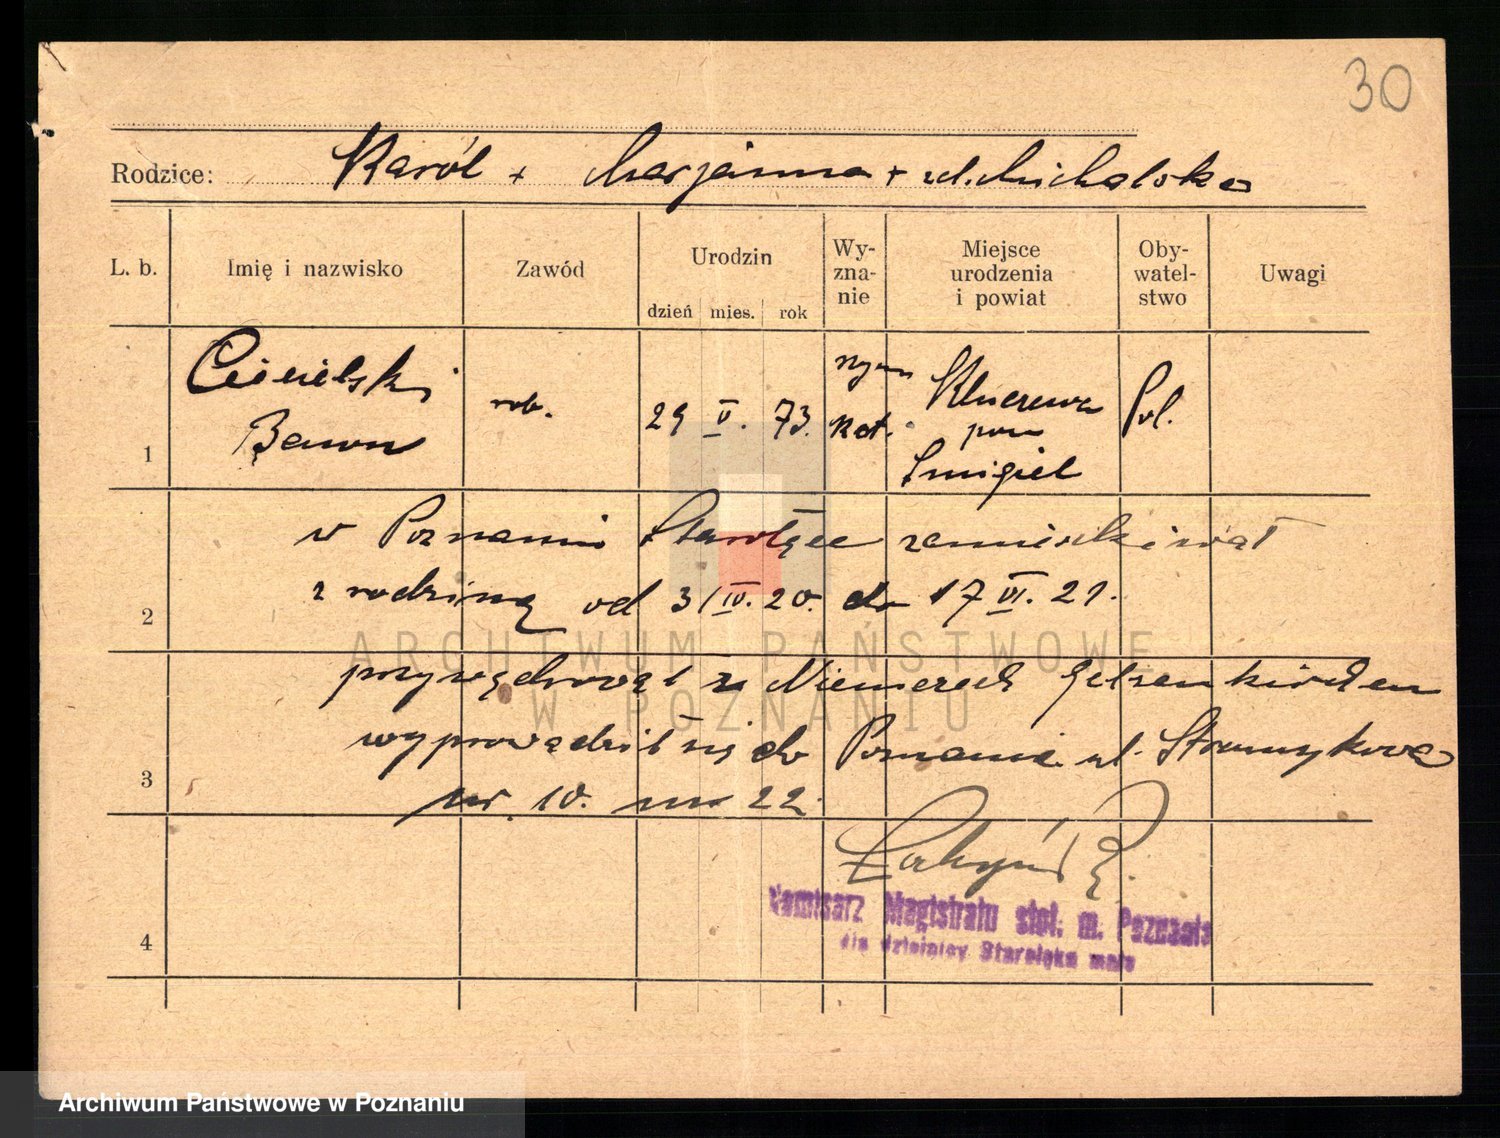 30
Rodzice: Karól + Marjanna + zd. Michalska
L. b. Imię i nazwisko Zawód Urodzin dzień mies. rok Wy-zna-nie Miejsce urodzenia i powiat Oby-watel-stwo Uwagi
1 Ciesielski rob. 29 V. 73. rzym kat. Kluczewo pow Śmigiel Pol.
w Poznaniu Starołęce zamieszkiwał
2 z rodziną od 3/IV. 20. do 17 VI. 21.
przywędrował z Niemczech Gelsenkirchen
wyprowadził się do Poznania ul. Strumykowa
3 nr. 10. m 22.
Komisarz Magistratu stoł. m. Poznania
4 dla dzielnicy Starołęka mała
ARCHIWUM PAŃSTWOWE
W POZNANIU
Archiwum Państwowe w Poznaniu